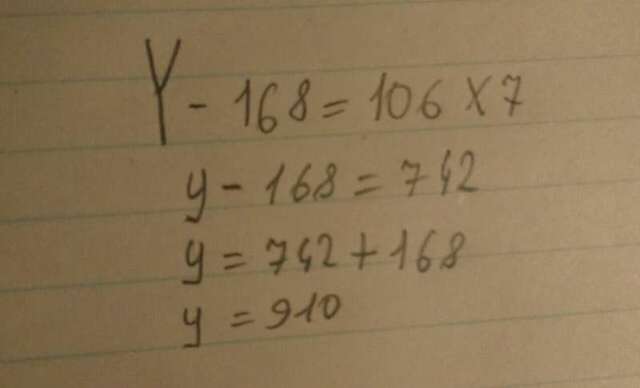 Y - 168 = 106 × 7
y - 168 = 742
y = 742 + 168
y = 910